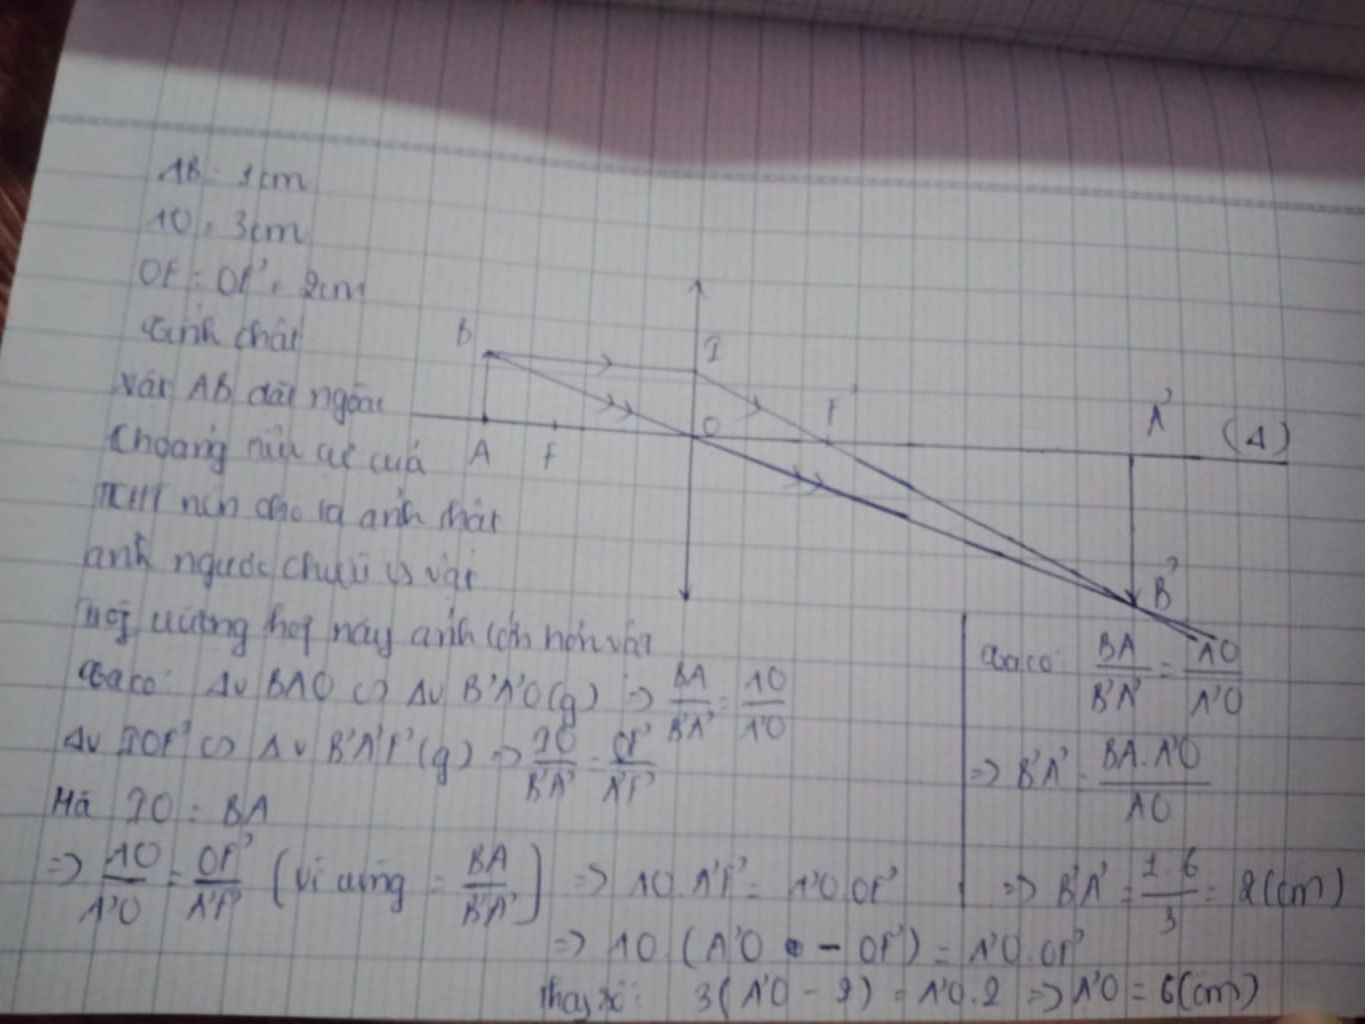 AB = 1cm
AO = 3cm
OF = OF' = 2cm
Tính chất
Vật AB đặt ngoài
khoảng tiêu cự của
TKHT nên cho ta ảnh thật
ảnh ngược chiều với vật
Trong trường hợp này ảnh lớn hơn vật
B
I
A
F
O
F'
A'
(Δ)
B'
Ta có: Δv BAO ∽ Δv B'A'O (g) => BA/B'A' = AO/A'O
Δv IOF' ∽ Δv B'A'F' (g) => IO/B'A' = OF'/A'F'
Mà IO = BA
=> AO/A'O = OF'/A'F' (vì cùng = BA/B'A') => AO.A'F' = A'O.OF'
=> AO.(A'O - OF') = A'O.OF'
Thay số: 3(A'O - 2) = A'O.2 => A'O = 6(cm)
Ta có: BA/B'A' = AO/A'O
=> B'A' = BA.A'O/AO
=> B'A' = 1.6/3 = 2(cm)